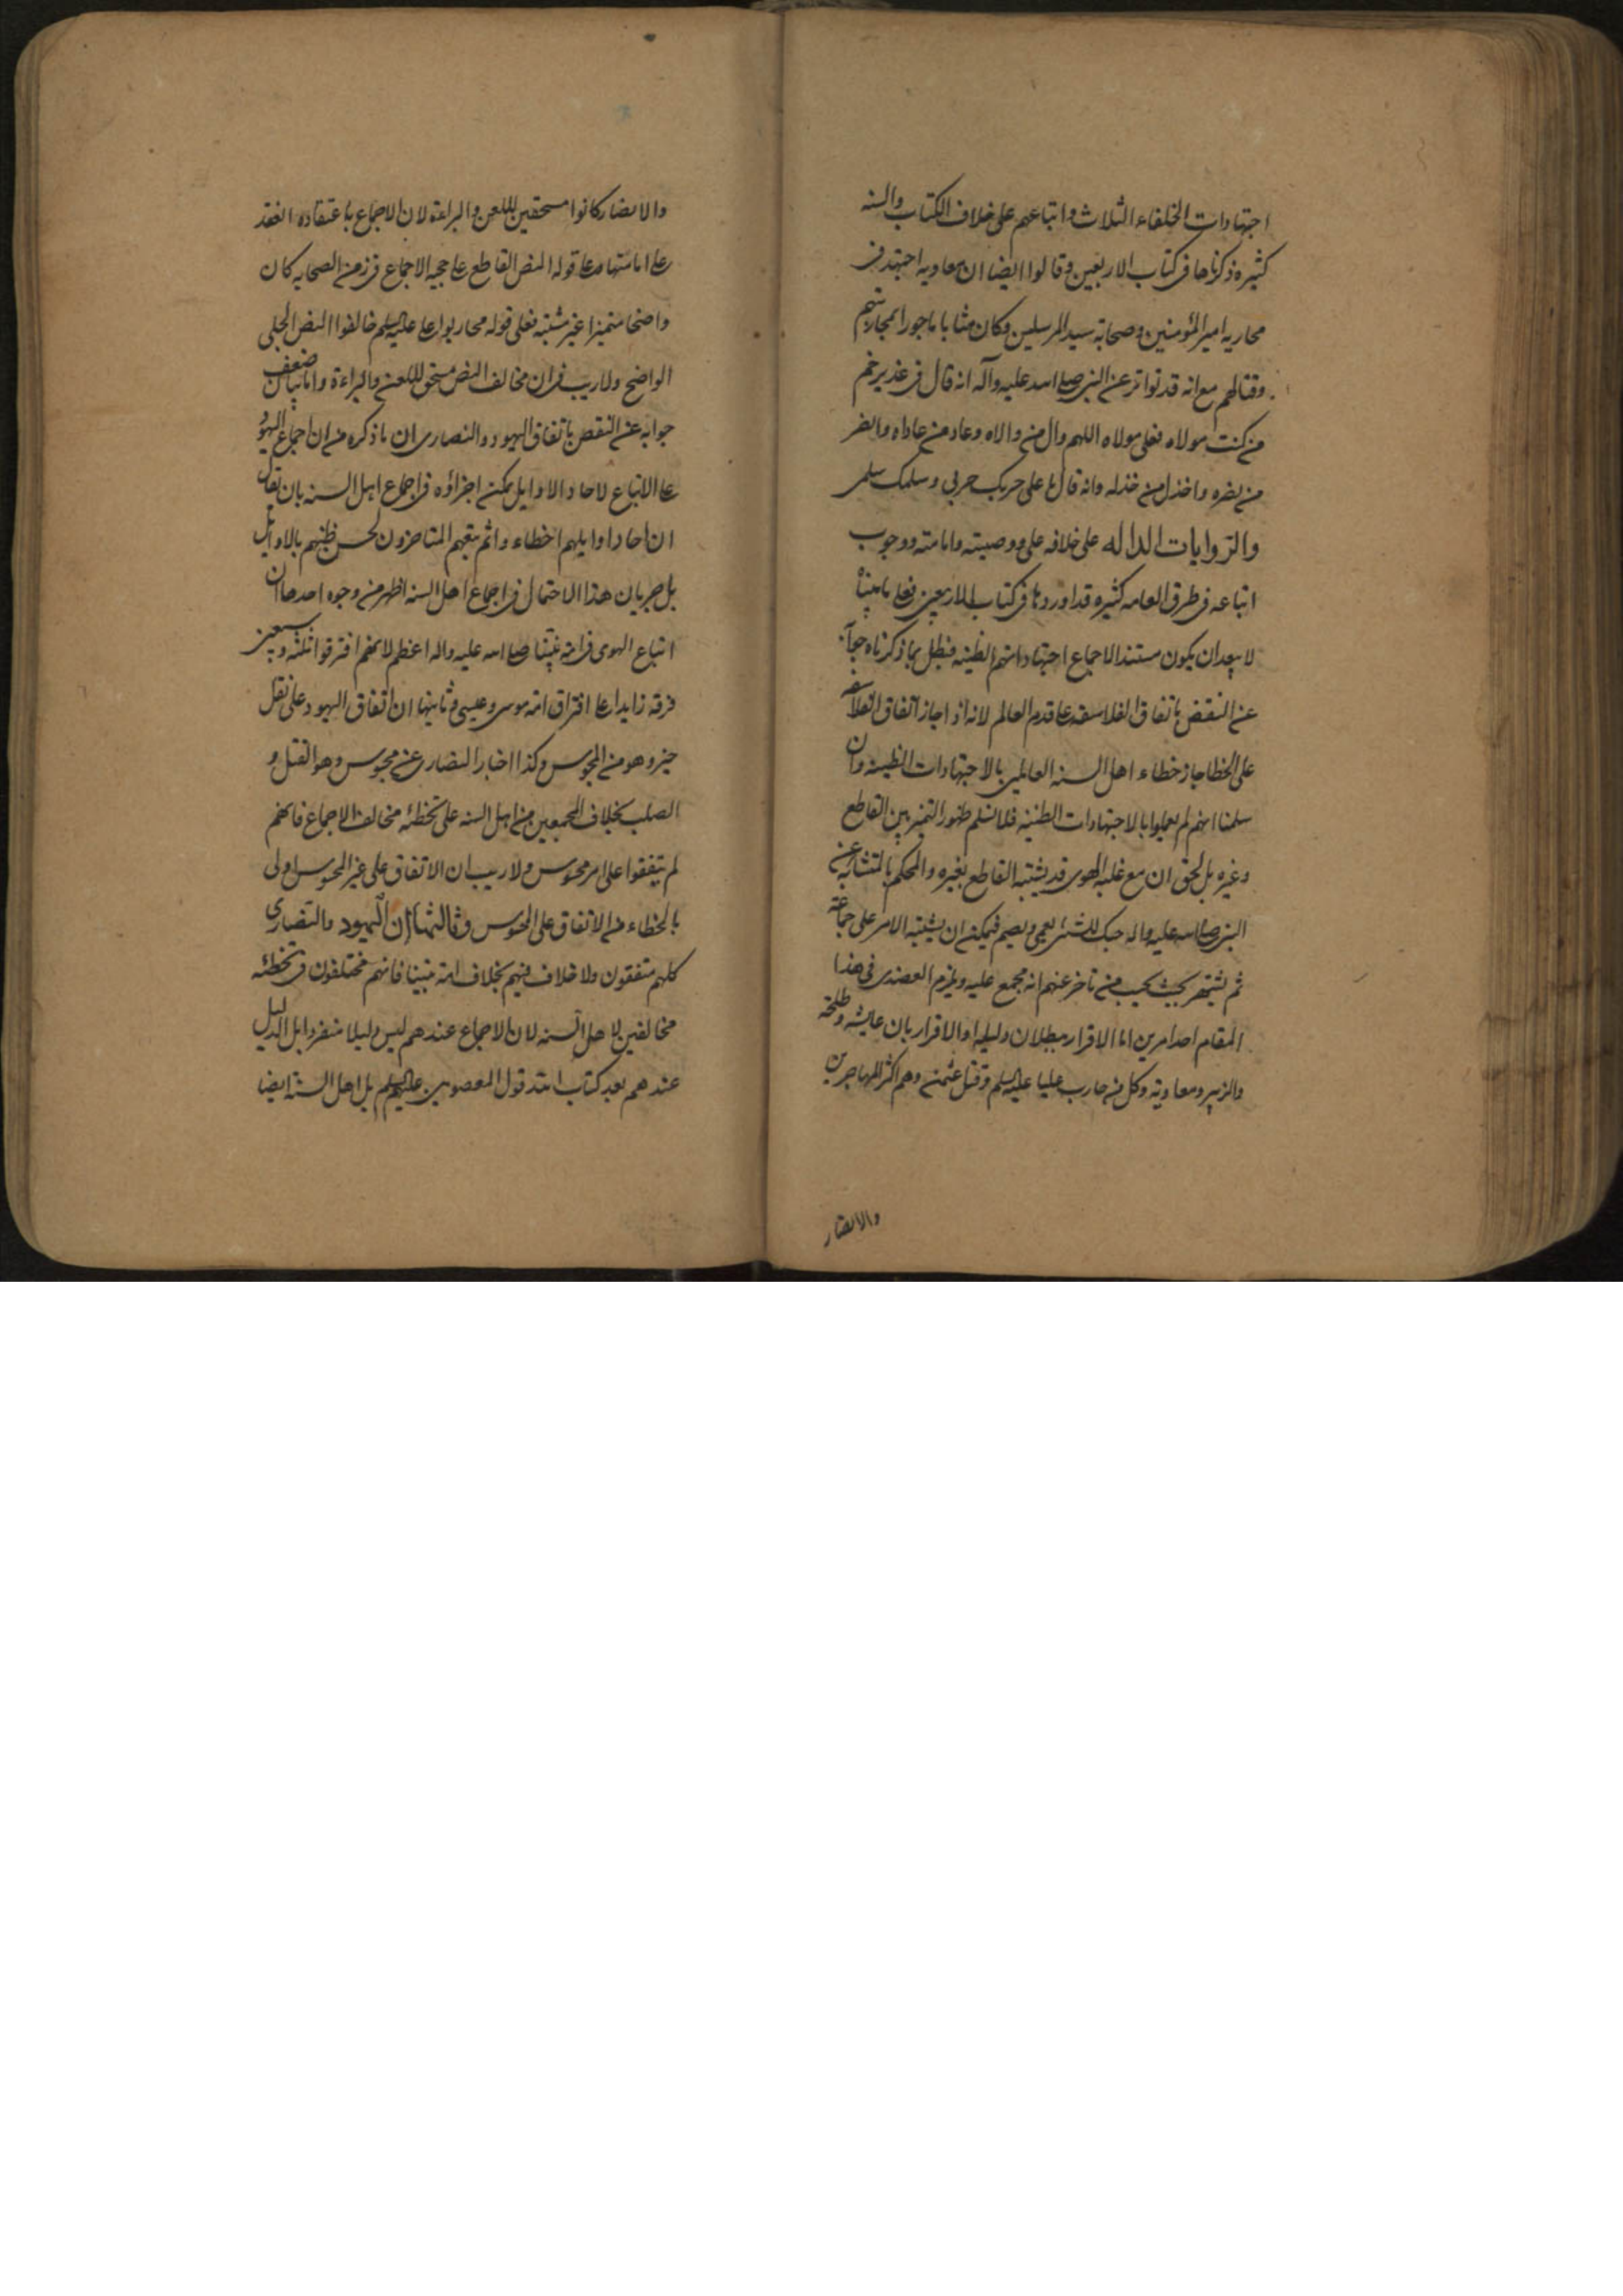 اجتهادات الخلفاء الثلاث واتباعهم على خلاف الكتاب والسنه
كثيره ذكرناها فى كتاب الاربعين وقالوا ايضا ان معاويه اجتهد فى
محاربه امير المؤمنين وصحابة سيد المرسلين وكان مثابا ماجورا بمحاربتهم
وقتالهم مع انه قد تواتر عن النبى صلى الله عليه وآله انه قال فى غدير خم
من كنت مولاه فعلى مولاه اللهم وال من والاه وعاد من عاداه وانصر
من نصره واخذل من خذله وانه قال يا على حربك حربى وسلمك سلمى
والروايات الداله على خلافه على ووصيته وامامته ووجوب
اتباعه فى طرق العامه كثيره قد اوردناها فى كتاب الاربعين فعلى ما بيناه
لا يبعدان يكون مستند الاجماع اجتهاداتهم الظنيه فبطل بما ذكرناه جوابه
عن النقض باتفاق الفلاسفه على قدم العالم لانه اذا جاز اتفاق الفلاسفه
على الخطا جاز خطاء اهل السنه العالمين بالاجتهادات الظنيه وان
سلمنا انهم لم يعملوا بالاجتهادات الظنيه فلا نسلم ظهور التميز بين القاطع
وغيره بل الحق ان مع غلبه الهوى قد يشتبه القاطع بغيره والمحكم بالمتشابه عن
النبى صلى الله عليه واله حبك للشئ يعمى ويصم فيمكن ان يشتبه الامر على جماعة
ثم يشتهر بحيث يحسب من تاخر عنهم انه مجمع عليه ويلزم العضدى فى هذا
المقام احد امرين اما الاقرار ببطلان دليله او الاقرار بان عايشه وطلحة
والزبير ومعاوية وكل من حارب عليا عليه السلم وقتل عثمن وهم اكثر المهاجرين
والانصار
والانصار كانوا مستحقين للعن والبراءة لان الاجماع باعتقاده انعقد
على امامتهما وعلى قوله النص القاطع على حجيه الاجماع فى زمن الصحابه كان
واضحا متميزا غير مشتبه فعلى قوله محاربوا على عليه السلم خالفوا النص الجلى
الواضح ولا ريب فى ان مخالف النص مستحق للعن والبراءة واما بيان ضعف
جوابه عن النقض باتفاق اليهود والنصارى ان ما ذكره من ان اجماع اليهود
على الاتباع لاحاد الاوايل يمكن اجراؤه فى اجماع اهل السنه بان يقال
ان احاد اوايلهم اخطاء واثم تبعهم المتاخرون لحسن ظنهم بالاوايل
بل جريان هذا الاحتمال فى اجماع اهل السنه اظهر من وجوه احدها ان
اتباع الهوى فى امة نبينا صلى الله عليه واله اعظم لانهم افترقوا ثلثه وسبعين
فرقه زايدا على افتراق امه موسى وعيسى وثانيها ان اتفاق اليهود على نقل
خبر وهو من المحسوس وكذا اخبار النصارى عن محسوس وهو القتل و
الصلب بخلاف المجمعين من اهل السنه على تخطئه مخالف الاجماع فانهم
لم يتفقوا على امر محسوس ولا ريب ان الاتفاق على غير المحسوس اولى
بالخطاء من الاتفاق على المحسوس وثالثها ان اليهود والنصارى
كلهم متفقون ولا خلاف فيهم بخلاف امة نبينا فانهم مختلفون فى تخطئه
مخالفين لاهل السنه لان الاجماع عندهم ليس دليلا منفردا بل الدليل
عندهم بعد كتاب الله قول المعصومين عليهم السلم بل اهل السنة ايضا